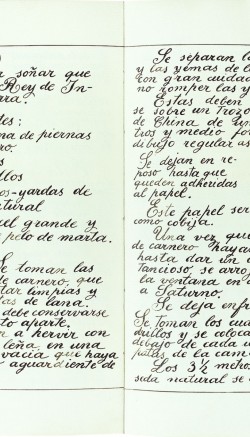 soñar que
Rey de In-
rra.
tes:
na de piernas
ro.
llos
os-yardas de
tural
el grande y
pelo de marta.
Se toman las
de carnero, que
tar limpias y
as de lana.
debe conservarse
to aparte.
n a hervir con
leña, en una
vacía que haya
aguardiente de
Se separan la
y las yemas de l
con gran cuidad
no romper las y
Estas deben
se sobre un trozo
de China de un
tros y medio fo
dibujo regular us
Se dejan en re-
poso hasta que
queden adheridas
al papel.
Este papel ser
como cobija.
Una vez que
de carnero hayan
hasta dar un c
tancioso, se arro
la ventana en d
a Saturno.
Se deja enfr
Se toman los cua
drillos y se coloca
debajo de cada u
patas de la cam
Los 3½ metros
seda natural se